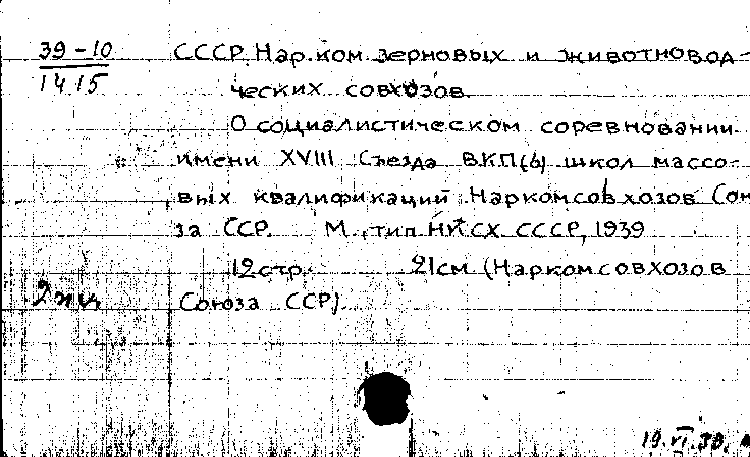 39-10
1415
СССР. Нар.ком зерновых и животновод-
ческих совхозов.
О социалистическом соревновании
имени XVIII Съезда ВКП(б) школ массо-
вых квалификаций Наркомсовхозов Сою
за ССР. М., тип НКСХ СССР, 1939
12стр. 21см (Наркомсовхозов
Союза ССР).
19.VI.39.